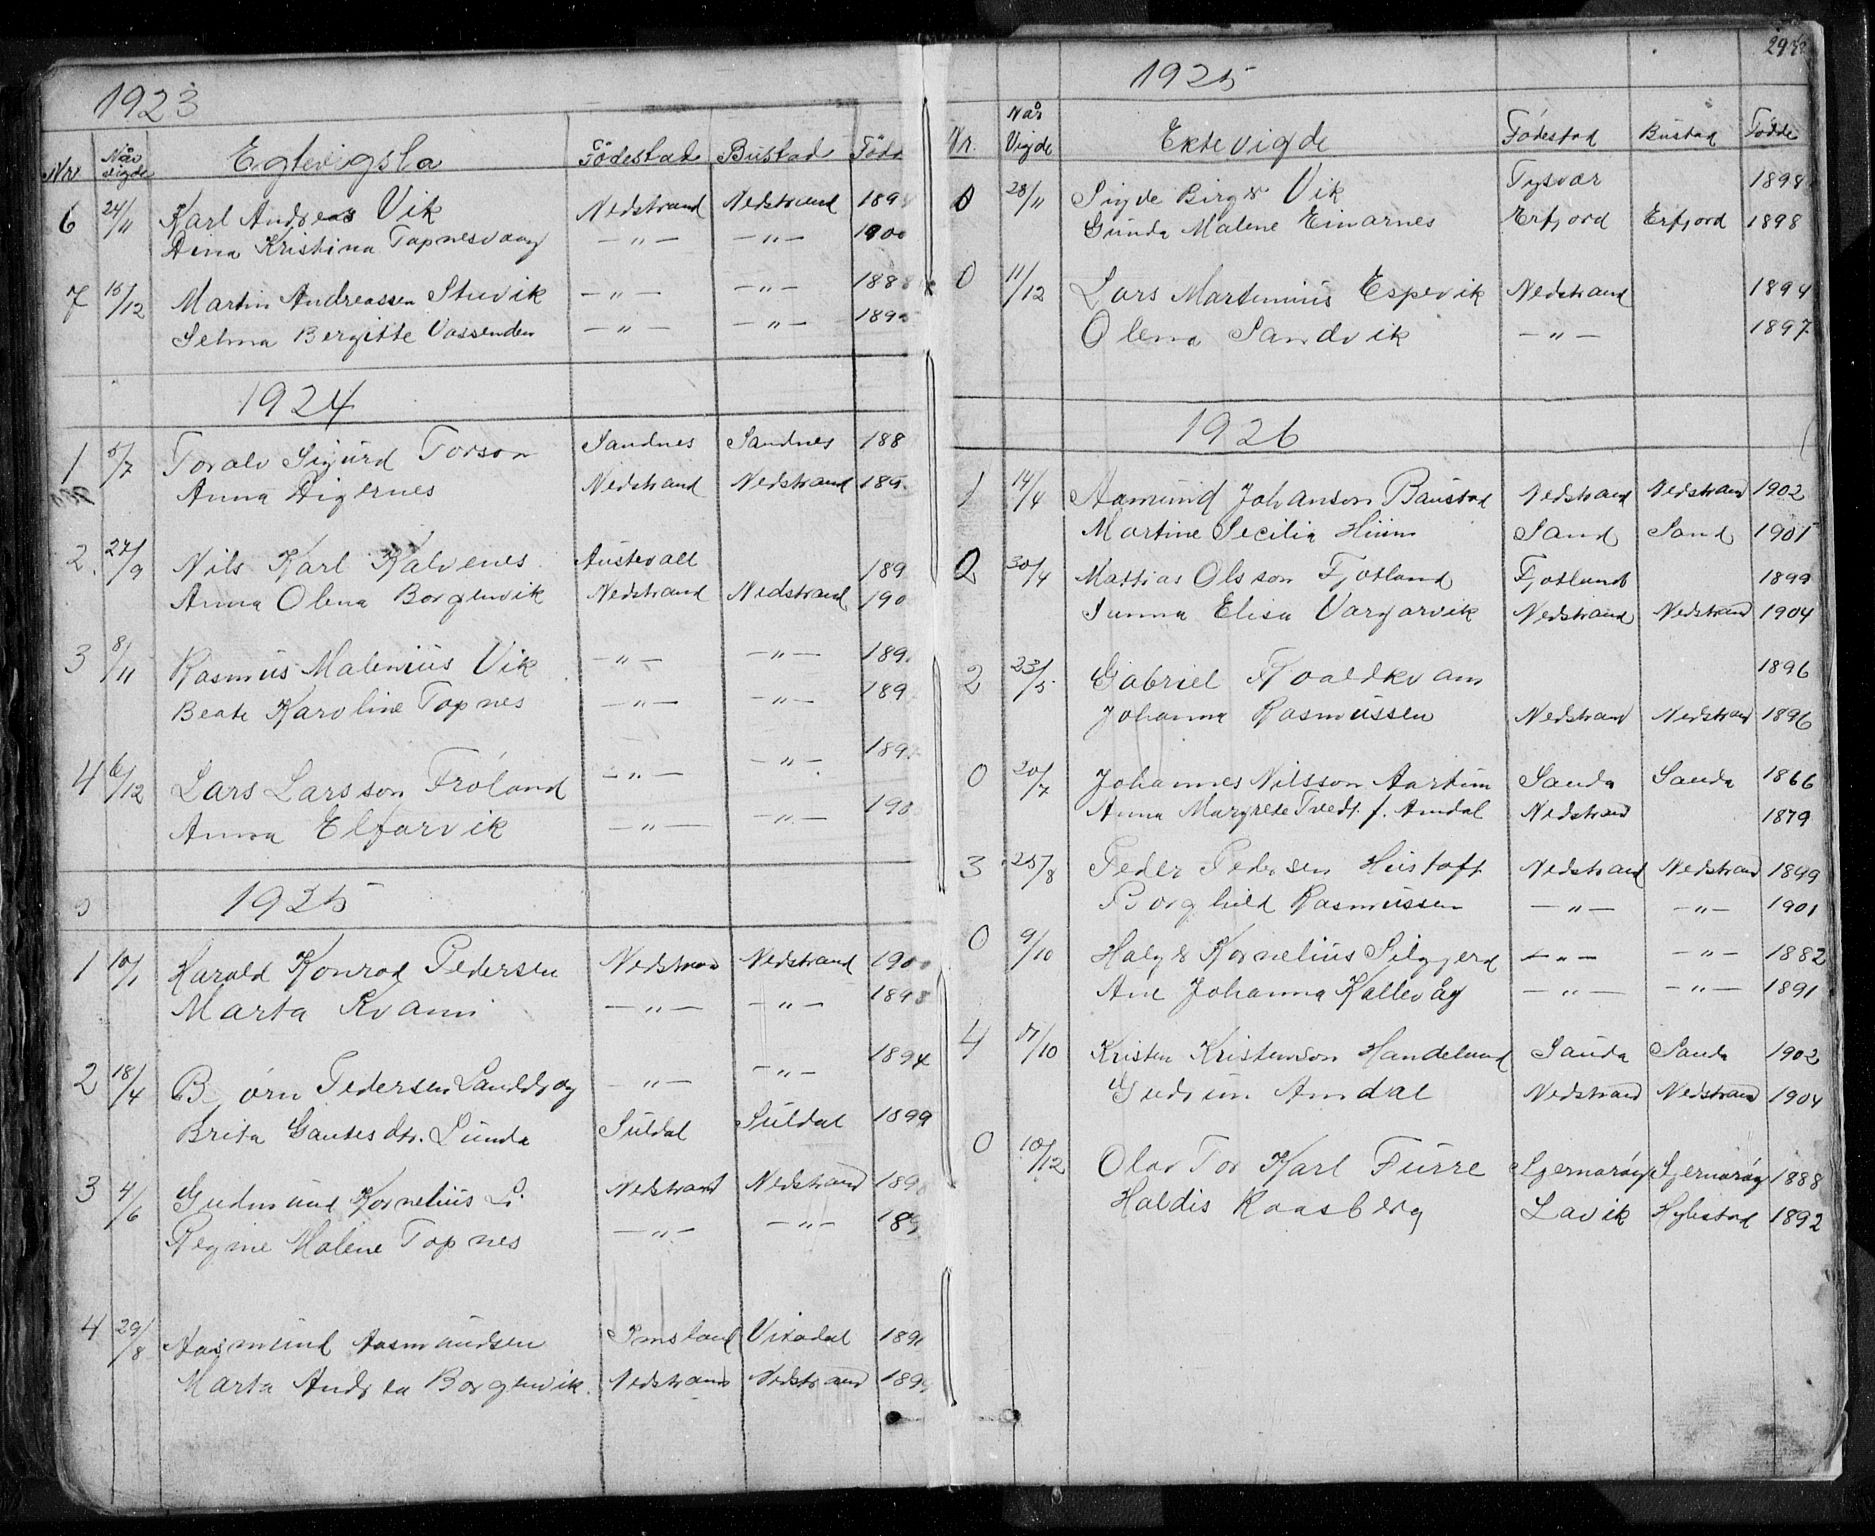 1923
Nr Når vigde Egtevigsla Födestad Bustad Född
6 24/11 Karl Andreas Vik Nedstrand Nedstrand 189
Anna Kristina Tapnesvaag —„— —„— 1900
7 15/12 Martin Andreassen Stuvik —„— —„— 188
Selma Bergitte Vassenden —„— —„— 189
1924
1 5/7 Toralv Sigurd Torson Sandnes Sandnes 188
Anna Digernes Nedstrand Nedstrand 189
2. 27/9 Nils Karl Kalvenes Austevoll 189
Anna Olena Borgenvik Nedstrand Nedstrand 190
3 8/11 Rasmus Malenius Vik —„— —„— 189
Beate Karoline Tapnes —„— —„— 189
4 6/12 Lars Larsson Fröland —„— —„— 189
Anna Elfarvik —„— —„— 190
1925
1 10/1 Harald Konrad Pedersen Nedstrand Nedstrand 190
Marta Kvam —„— —„— 1898
2 18/4 B örn Pedersen —„— —„— 1894
Brita Gautesdtr. Lunda Suldal Suldal 1899
3 4/6 Gudmund Kornelius Li Nedstrand Nedstrand 189
Regine Malene Tapnes —„— —„— 189
4 29/8 Aasmund Aasmundsen Imsland Vikadal 1891
Marta Andrea Borgenvik. Nedstrand Nedstrand 189
1925
Nr. Når Vigde Ektevigde Födestad Bustad Födde
0 28/11 Birger Vik Tysvær 1898
Gunda Malene Einarnes Erfjord Erfjord 1898
0 11/12 Lars Martinius Espevik Nedstrand 1894
Olena Sandvik —„— 1897
1926
1 14/4 Aamund Johanson Baustad Nedstrand Nedstrand 1902
Martine Secilia Hiim Sand Sand 1901
2 30/4 Mattias Olsson Fjotland Fjotland 1899
Sunna Elisa Vargarvik Nedstrand Nedstrand 1904
2 23/5 Gabriel Kvaldkvam 1896
Johanna Rasmussen Nedstrand Nedstrand 1896
0 20/7 Johannes Nilsson Aartun Sauda Sauda 1866
Anna Margrete Tvedt f. Amdal Nedstrand 1879
3 25/8 Peder Pedersen Hustoft Nedstrand Nedstrand 1899
Borghild Rasmussen —„— —„— 1901
0 9/10 Halger Kornelius Silgjerd —„— —„— 1882
Ane Johanna Kallevåg —„— —„— 1891
4 17/10 Kristen Kristenson Handeland Sauda Sauda 1902
Gudrun Amdal Nedstrand Nedstrand 1904
0 10/12 Olav Tor Karl Furre Sjernaröy Sjernaröy 1888
Haldis Raasberg Lavik Hylestad 1892